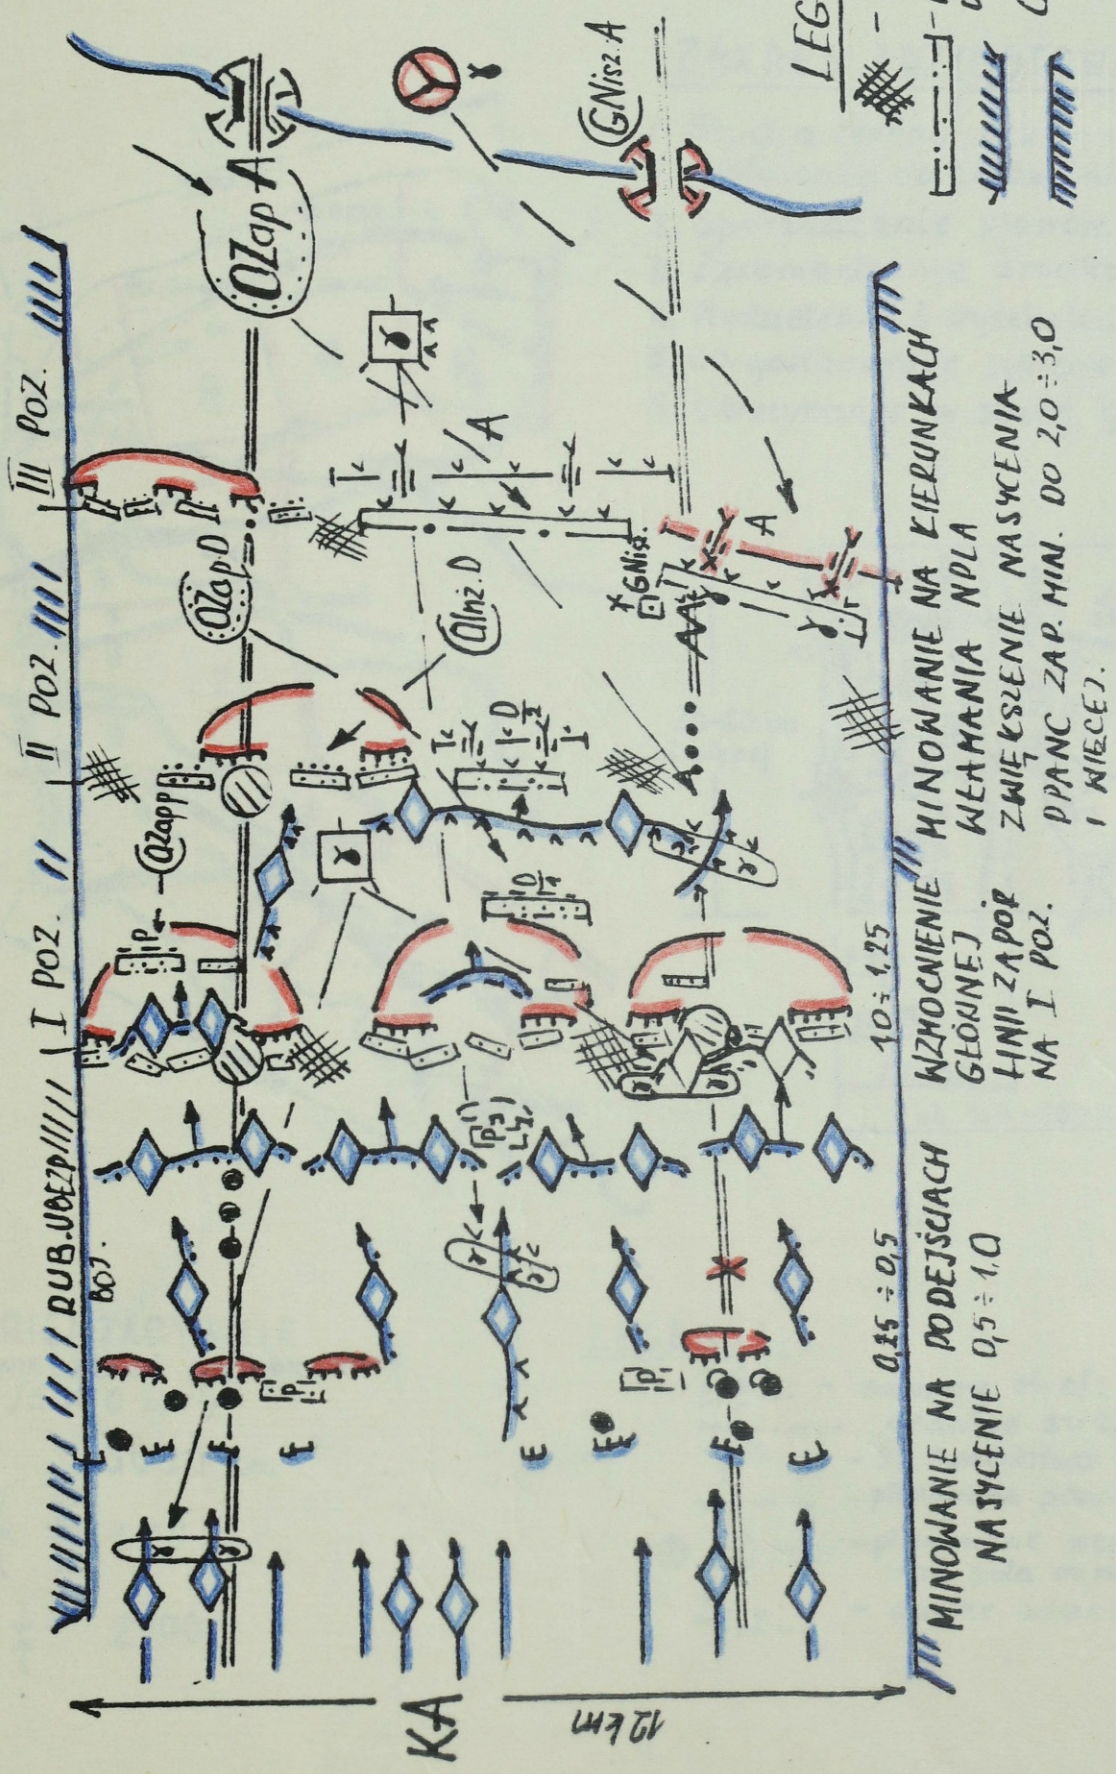 RUB.UBEZP
BOJ.
I POZ.
II POZ.
III POZ.
P
OZapp
OZap D
OZap A
P
D/1
D/2
OInż.D
A
GNisz.
A
GNisz.A
LEG
KA
12 km
0,25 ÷ 0,5
1,0 ÷ 1,25
MINOWANIE NA PODEJŚCIACH
NASYCENIE 0,5 ÷ 1,0
WZMOCNIENIE
GŁÓWNEJ
LINII ZAPÓR
NA I POZ.
MINOWANIE NA KIERUNKACH
WŁAMANIA NPLA
ZWIĘKSZENIE NASYCENIA
PPANC ZAP. MIN. DO 2,0 ÷ 3,0
I WIĘCEJ.